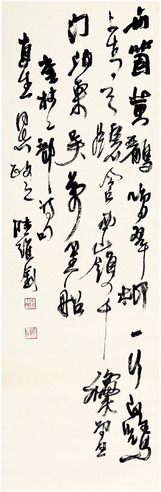 兩箇黃鸝鳴翠柳一行白鷺
上青天窗含西嶺千秋雪
門泊東吳萬里船
書杜工部詩句
直生同志政之 陸維釗